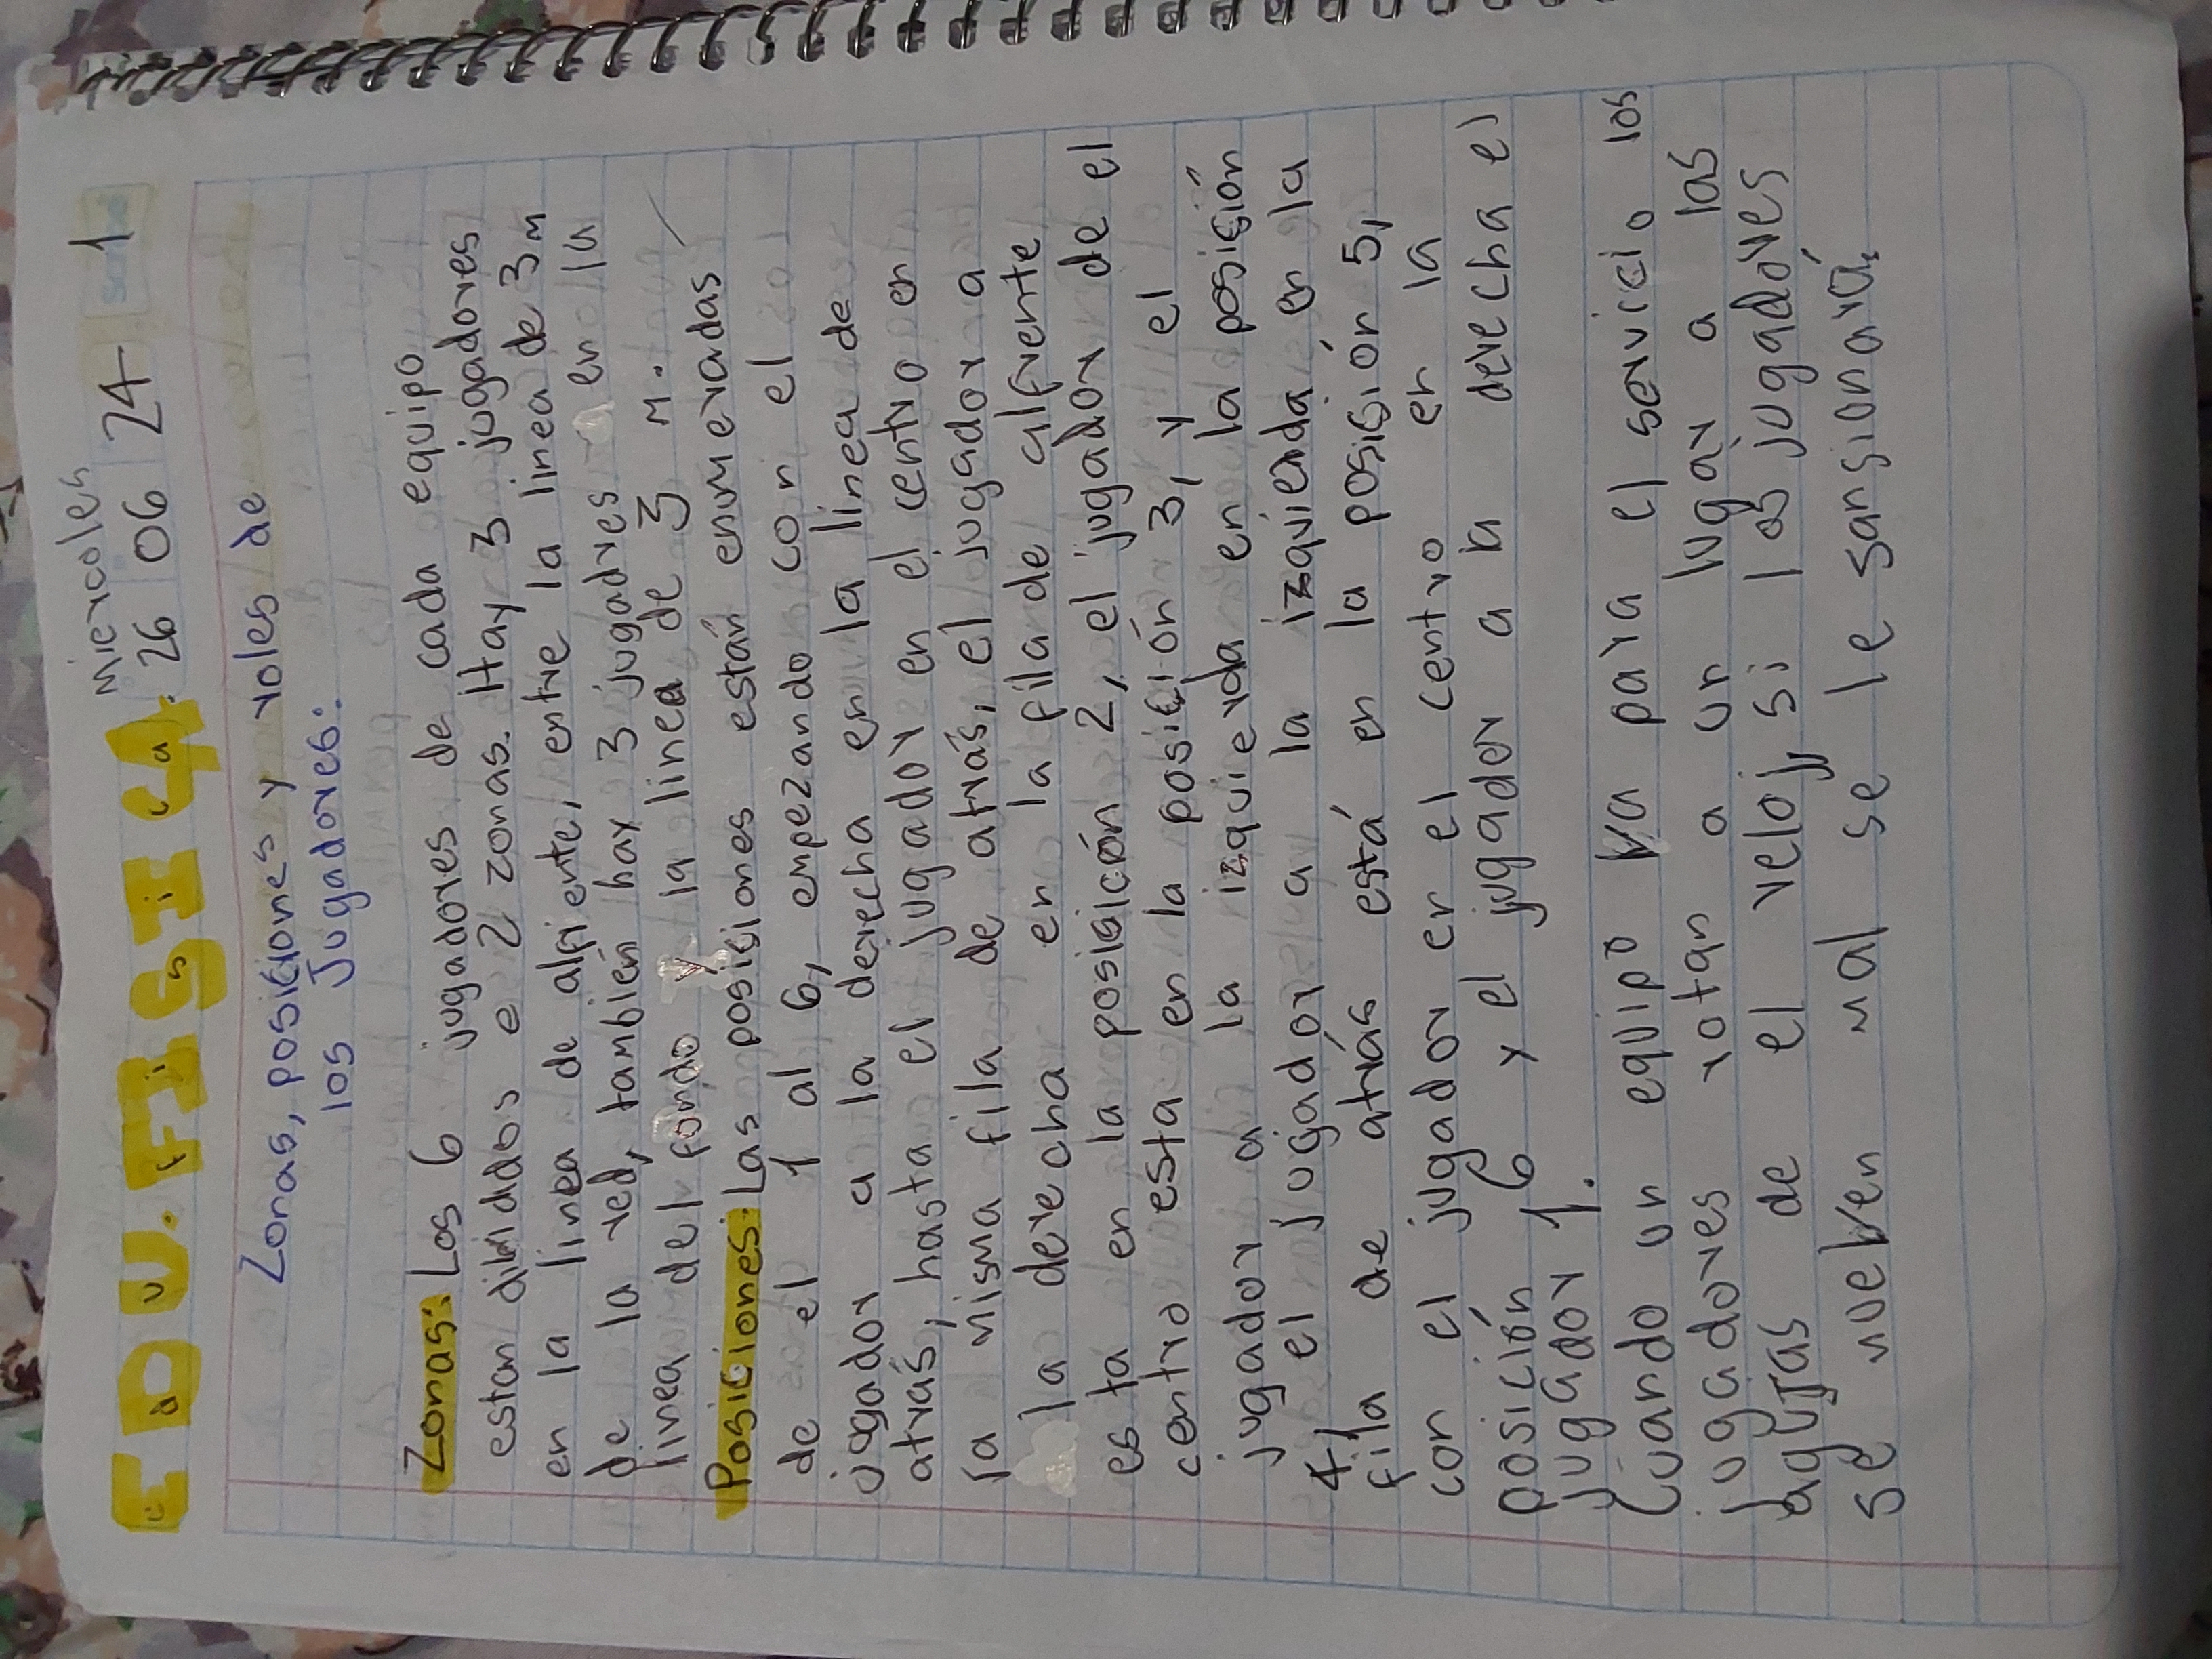 EDU. FISICA.
Miercoles
26 06 24 1
Zonas, posiciones y roles de
los Jugadores:
Zonas: Los 6 jugadores de cada equipo
estan dividos e 2 zonas. Hay 3 jugadores
en la linea de alfrente, entre la linea de 3m
de la red, también hay 3 jugadres en la
linea del fondo y la linea de 3 m.
Posiciones: Las posisiones están enumeradas
de el 1 al 6, empezando con el
jugador a la derecha en la linea de
atrás, hasta el jugador en el centro en
la misma fila de atrás, el jugador a
la derecha en la fila de alfrente
esta en la posisición 2, el jugador de el
centro esta en la posición 3, y el
jugador a la izquierda en la posisión
4 y el jugador a la izquierda en la
fila de atrás está en la posisión 5,
con el jugador en el centro en la
posición 6 y el jugador a la derecha el
jugador 1.
Cuando un equipo va para el servicio los
jugadores rotan a un lugar a las
agujas de el reloj, si los jugadores
se mueven mal se le sansionará.